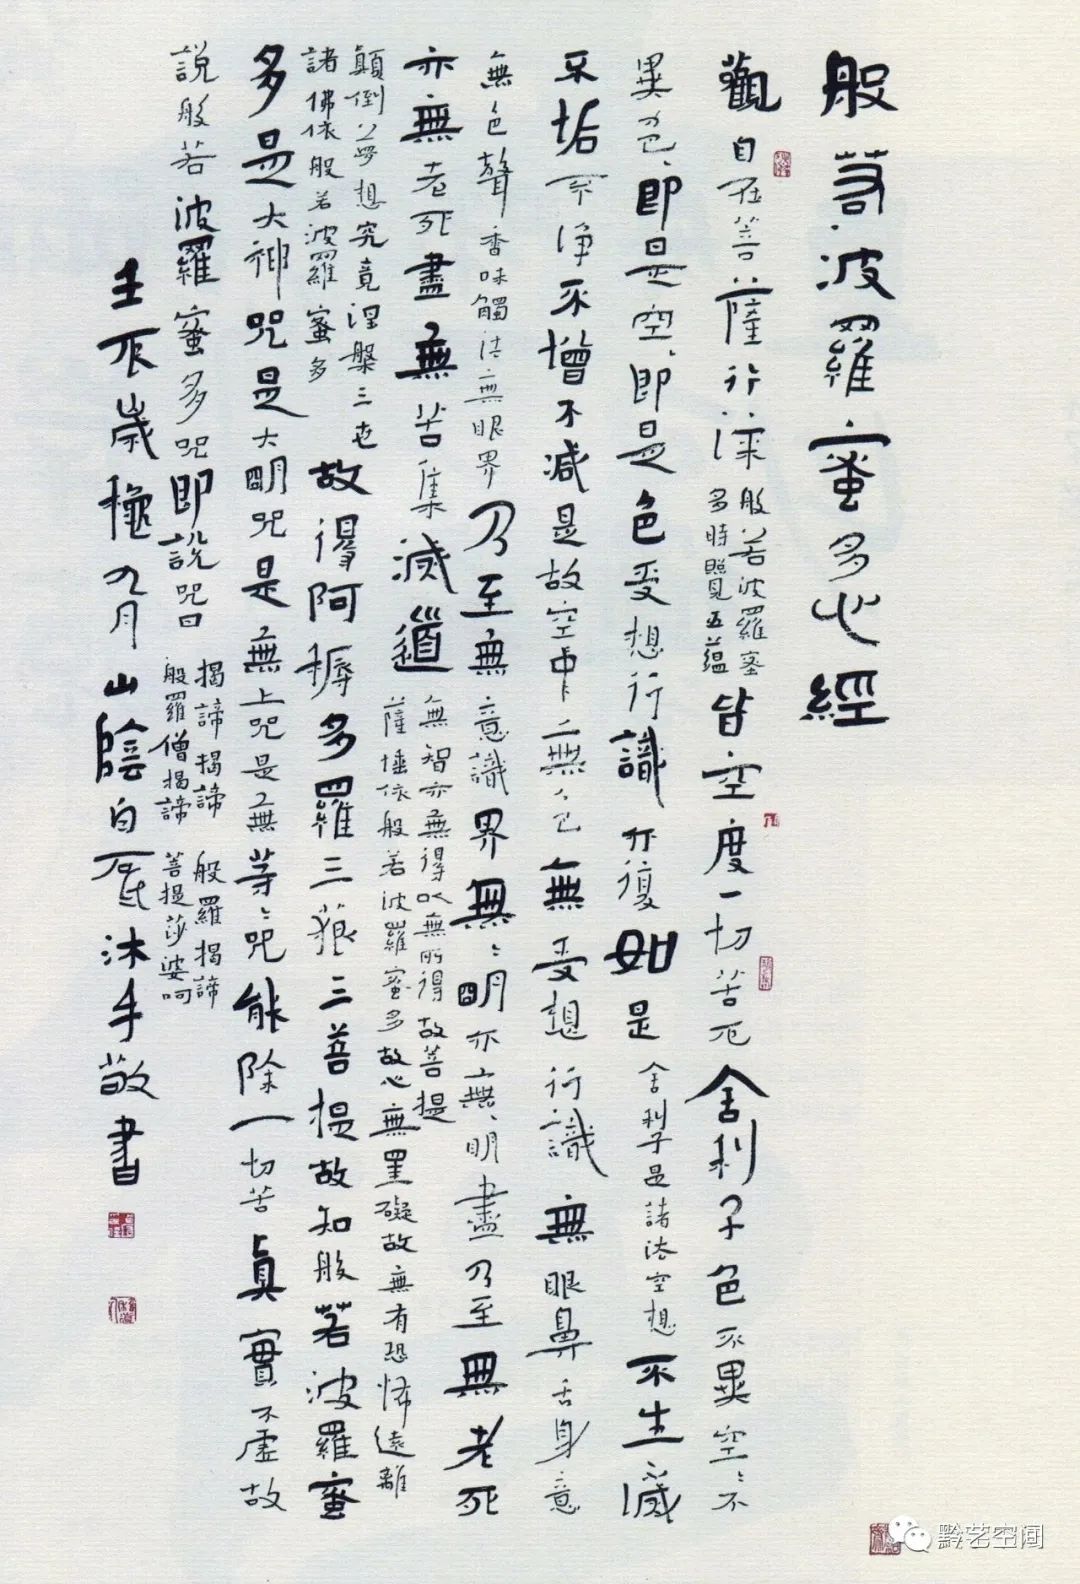 般若波羅蜜多心經
觀自在菩薩行深
般若波羅蜜
多時照見五蘊
皆空度一切苦厄舍利子色不異空〻不
異色〻即是空〻即是色受想行識亦復如是
舍利子是諸法空想
不生滅
不垢不淨不增不減是故空中無色無受想行識無眼鼻舌身意
無色聲香味觸法無眼界乃至無意識界無〻明亦無〻明盡乃至無老死
亦無老死盡無苦集滅道
無智亦無得以無所得故菩提
薩埵依般若波羅蜜多故心無罣礙故無有恐怖遠離
顛倒夢想究竟涅槃三世
諸佛依般若波羅蜜多
故得阿耨多羅三藐三菩提故知般若波羅蜜
多是大神咒是大明咒是無上咒是無等〻咒能除一切苦真實不虛故
說般若波羅蜜多咒即說咒曰
揭諦揭諦
般羅僧揭諦
般羅揭諦
菩提莎婆呵
壬辰歲龝九月山陰白砥沐手敬書
黔艺空间